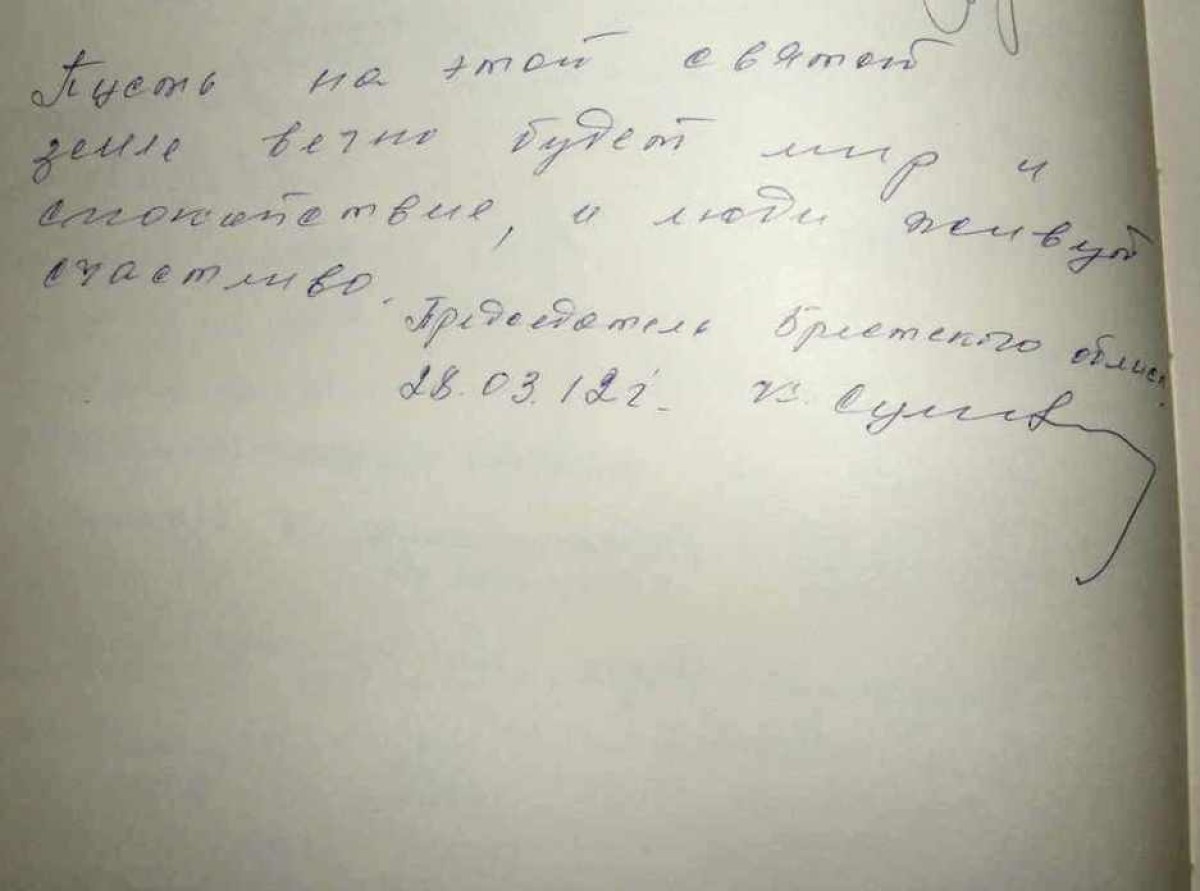 Пусть на этой святой
земле вечно будет мир и
спокойствие, и люди живут
счастливо.
Председатель Брестского облисп.
28.03.12г. К. Сумар